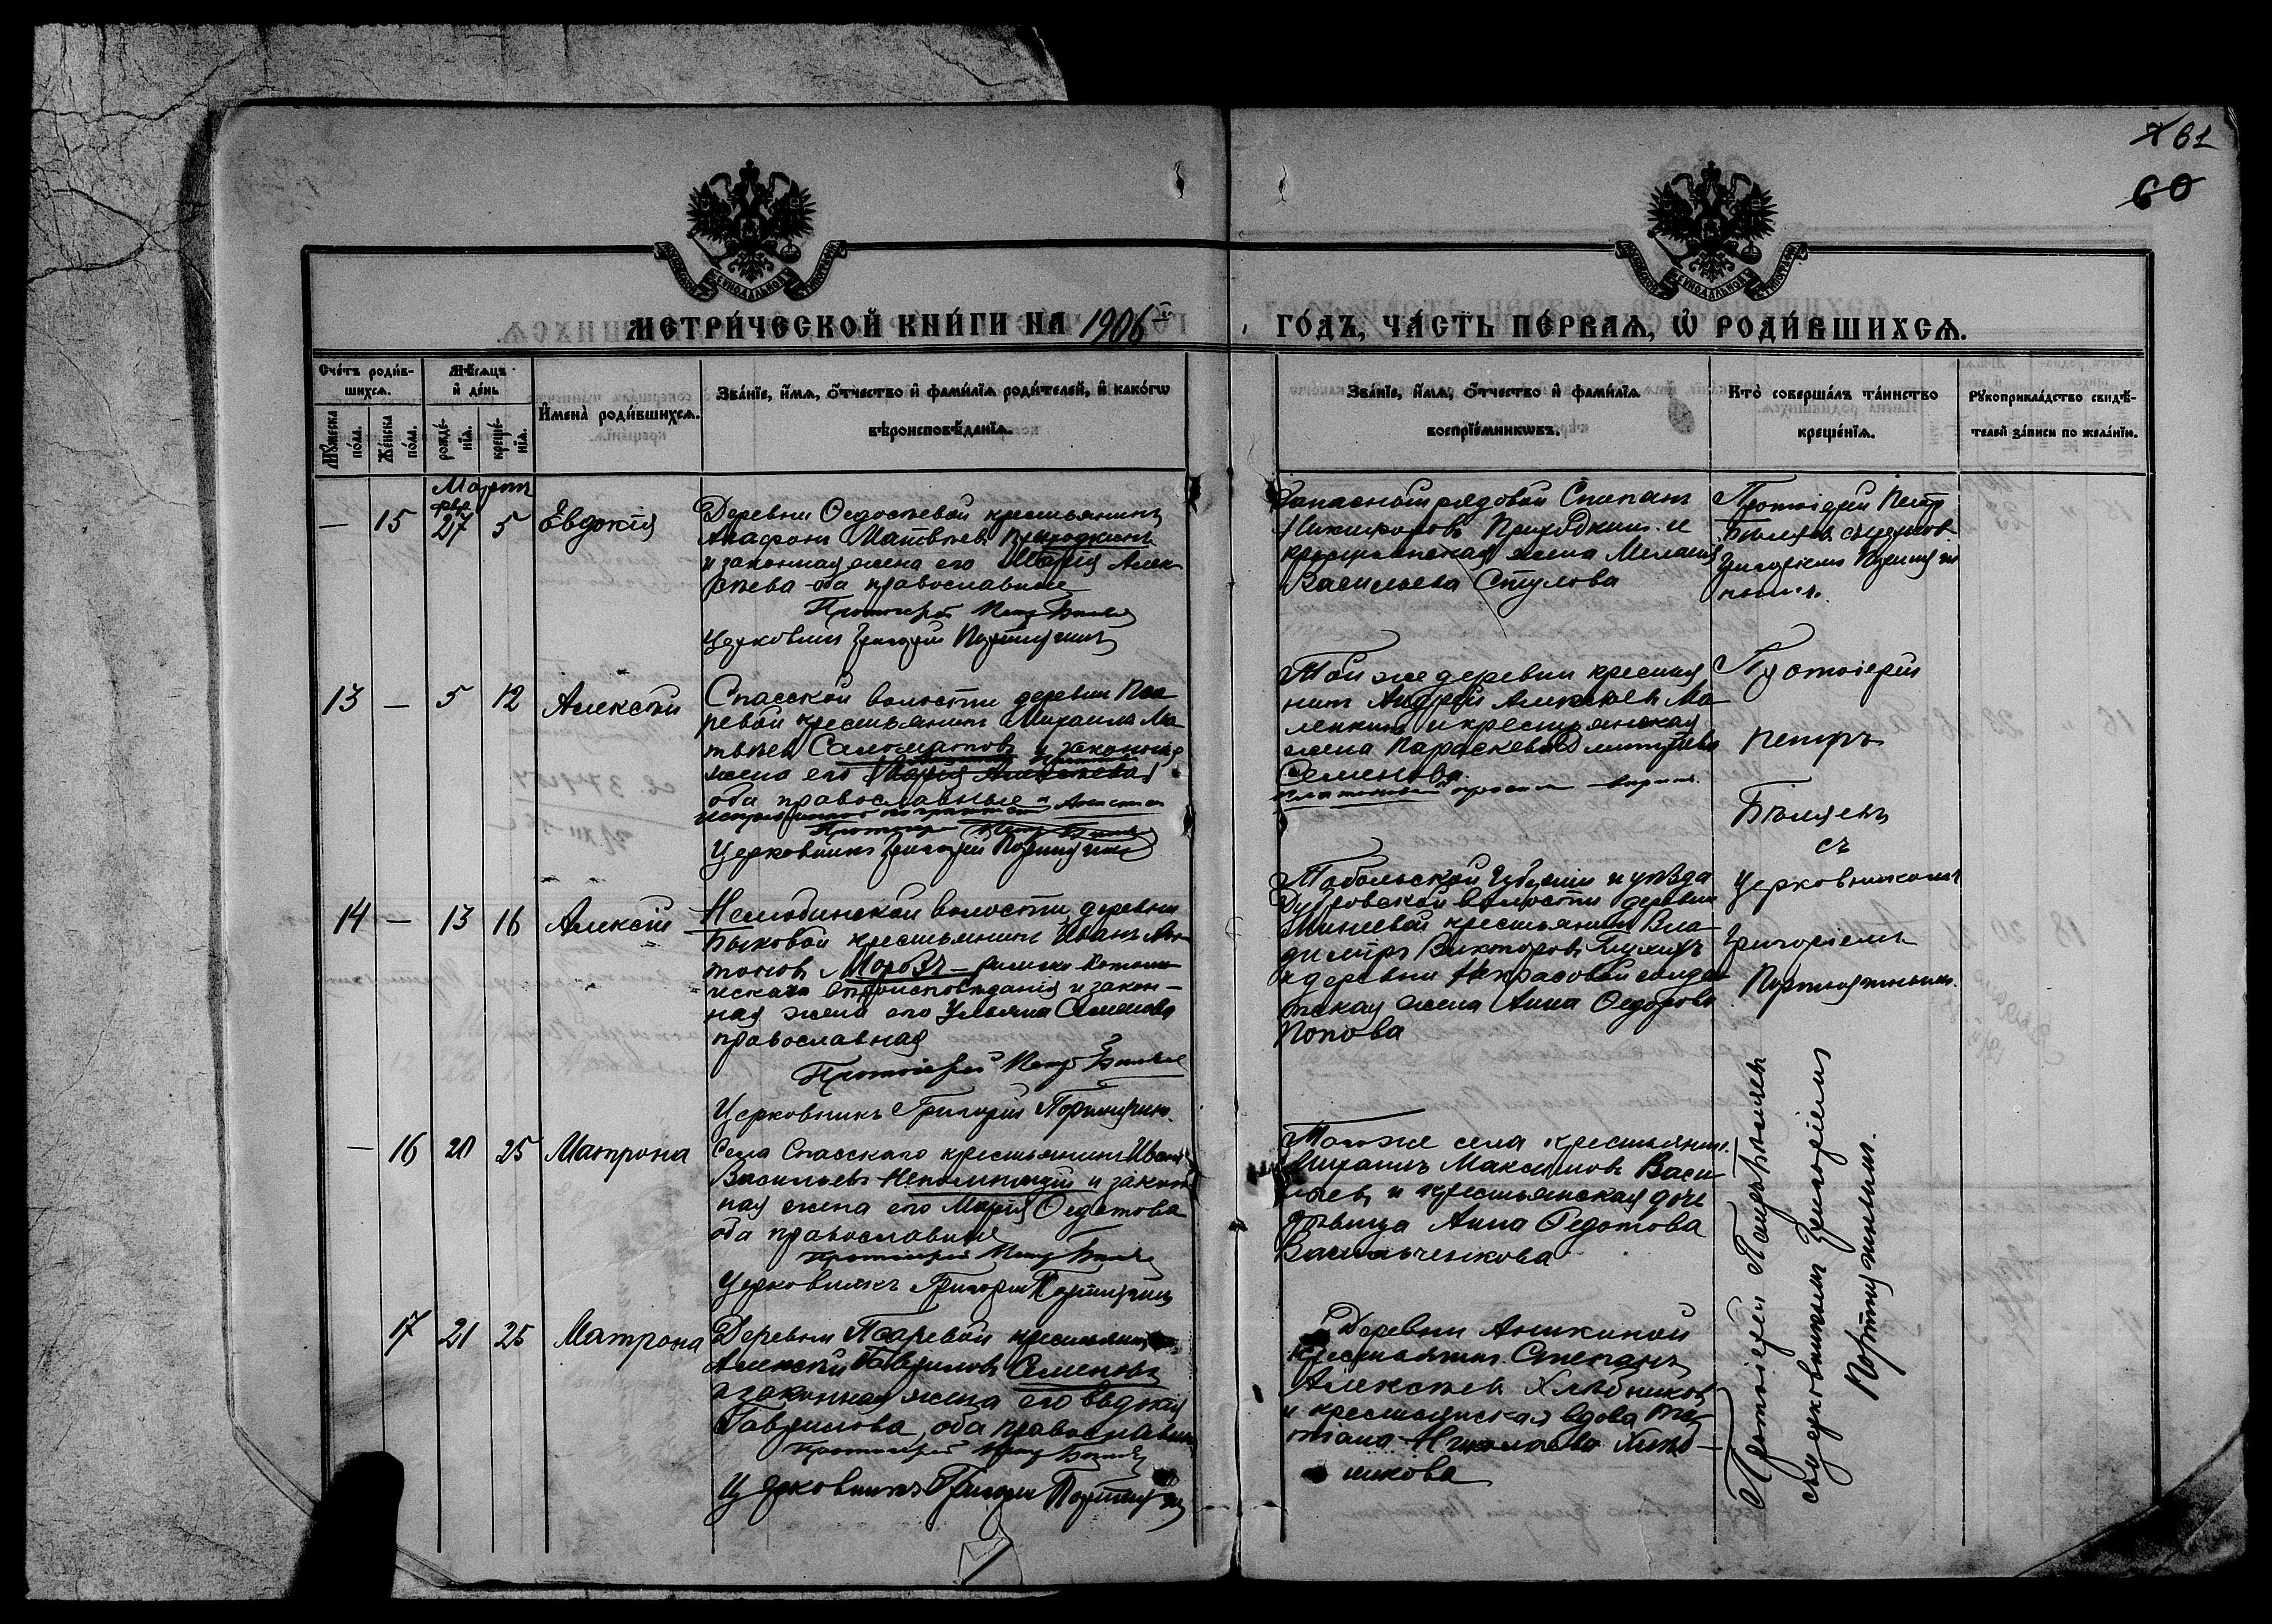 61
60
МЕТРИ́ЧЕСКОЙ КНИ́ГИ НА 1906й ГО́ДЪ, ЧА́СТЬ ПЕ́РВАѦ, Ѡ҆ РОДИ́ВШИХСѦ.
Сче́тъ роди́в-
шихсѧ.
Мꙋ́жеска по́ла.
Же́нска по́ла.
Мѣ́сѧцъ
и҆ де́нь
рожде́-
нїѧ.
креще́-
нїѧ.
И҆мена̀ роди́вшихсѧ.
Зва́нїе, и҆́мѧ, ѻ҆́тчество и҆ фами́лїѧ роди́телей, и҆ како́гѡ
вѣроисповѣ́данїѧ.
Зва́нїе, и҆́мѧ, ѻ҆́тчество и҆ фами́лїѧ
воспрїе́мникѡвъ.
Кто̀ соверша́лъ та́инство
креще́нїѧ.
Рꙋкоприкла́дство свидѣ́-
телей за́писи по жела́нїю.
Мартъ
— 15 февр. 27 5 Евдокія
Деревни Ѳедосѣевой крестьянинъ
Матвѣевъ
и законная жена его Марія Алек-
сѣева оба православные
Протоіерей Петръ Бѣляевъ
Церковникъ Григорій Портнягинъ
Запасный рядовой Степанъ
Никифоровъ и
крестьянская жена Меланія
Васильева Стулова
Протоіерей Петръ
Бѣляевъ съ церков-
Григоріемъ
13 — 5 12 Алексѣй
Спасской волости деревни Пса-
ревой крестьянинъ Михаилъ Ма-
твѣевъ Саломатовъ и законная
жена его Марія Алексѣева
оба православные
Церковникъ Григорій Портнягинъ
Той же деревни крестья-
нинъ Андрей Алексѣевъ Ма-
ленкинъ и крестьянская
жена Параскева Димитріева
Семенова.
Протоіерей
Петръ
Бѣляевъ
съ
церковникомъ
Григоріемъ
Портнягинымъ.
14 — 13 16 Алексій
волости деревни
Быковой крестьянинъ Иванъ Ан-
тоновъ Морозъ — римско-католи-
ческаго вѣроисповѣданія и закон-
ная жена его Ульяна Семенова
православная
Протоіерей Петръ Бѣляевъ
Церковникъ Григорій Портнягинъ.
Тобольской губерніи и уѣзда
Дубровской волости деревни
крестьянинъ Вла-
диміръ Викторовъ
и деревни Некрасовой солдат-
ская жена Анна Ѳедорова
Попова
— 16 20 25 Матрона
Села Спасскаго крестьянинъ Иванъ
Васильевъ Непомнющій и закон-
ная жена его Марія Ѳедотова
оба православные
Протоіерей Петръ Бѣляевъ
Церковникъ Григорій Портнягинъ
Того же села крестьянинъ
Михаилъ Максимовъ Васи-
льевъ и крестьянская дочь
дѣвица Анна Ѳедотова
Васильченкова
17 21 25 Матрона
Деревни Псаревой крестьянинъ
Алексѣй Гавриловъ Семеновъ
и законная жена его Евдокія
Гаврилова, оба православные
Протоіерей Петръ Бѣляевъ
Церковникъ Григорій Портнягинъ
Деревни Аникиной
крестьянинъ Степанъ
Алексѣевъ Хлѣбниковъ
и крестьянская вдова Та-
тіана Николаева Хлѣб-
никова
Протоіерей Петръ Бѣляевъ
съ церковникомъ Григоріемъ
Портнягинымъ.